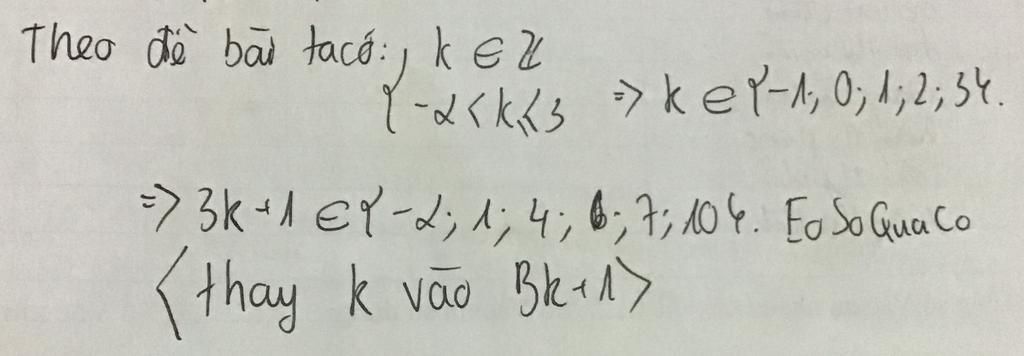 Theo đề bài ta có: { k ∈ ℤ
-2 < k ≤ 3 => k ∈ {-1; 0; 1; 2; 3}.
=> 3k+1 ∈ {-2; 1; 4; 6; 7; 10}. EoSoQuaCo
<thay k vào 3k+1>